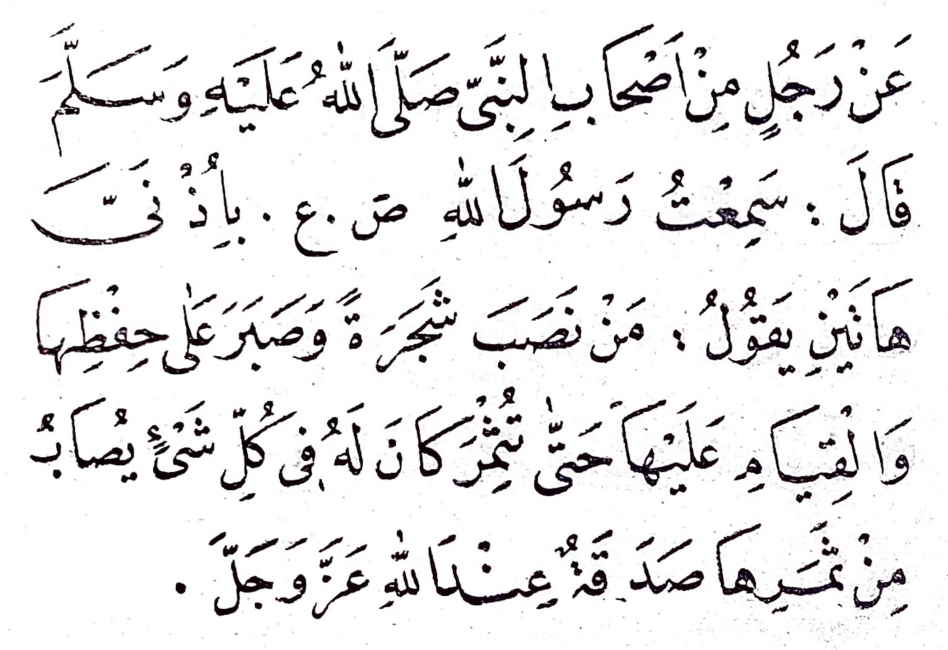 عَنْ رَجُلٍ مِنْ اَصْحَابِ النَّبِىِّ صَلَّى اللهُ عَلَيْهِ وَسَلَّمَ
قَالَ : سَمِعْتُ رَسُوْلَ اللهِ ص . ع . بِاُذُنَىَّ
هَاتَيْنِ يَقُوْلُ : مَنْ نَصَبَ شَجَرَةً وَصَبَرَ عَلٰى حِفْظِهَا
وَالْقِيَامِ عَلَيْهَا حَتّٰى تُثْمِرَ كَانَ لَهُ فِى كُلِّ شَىْءٍ يُصَابُ
مِنْ ثَمَرِهَا صَدَقَةٌ عِنْدَ اللهِ عَزَّ وَجَلَّ .